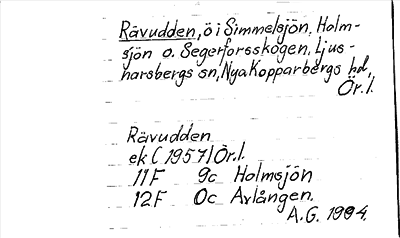 Rävudden, ö i Simmelsjön, Holm-
sjön o. Segerforsskogen, Ljus-
narsbergs sn, Nya Kopparbergs hd,
Ör.l.
Rävudden
ek (1957) Ör.l.
11F 9c Holmsjön
12F 0c Avlången.
A.G. 1994.